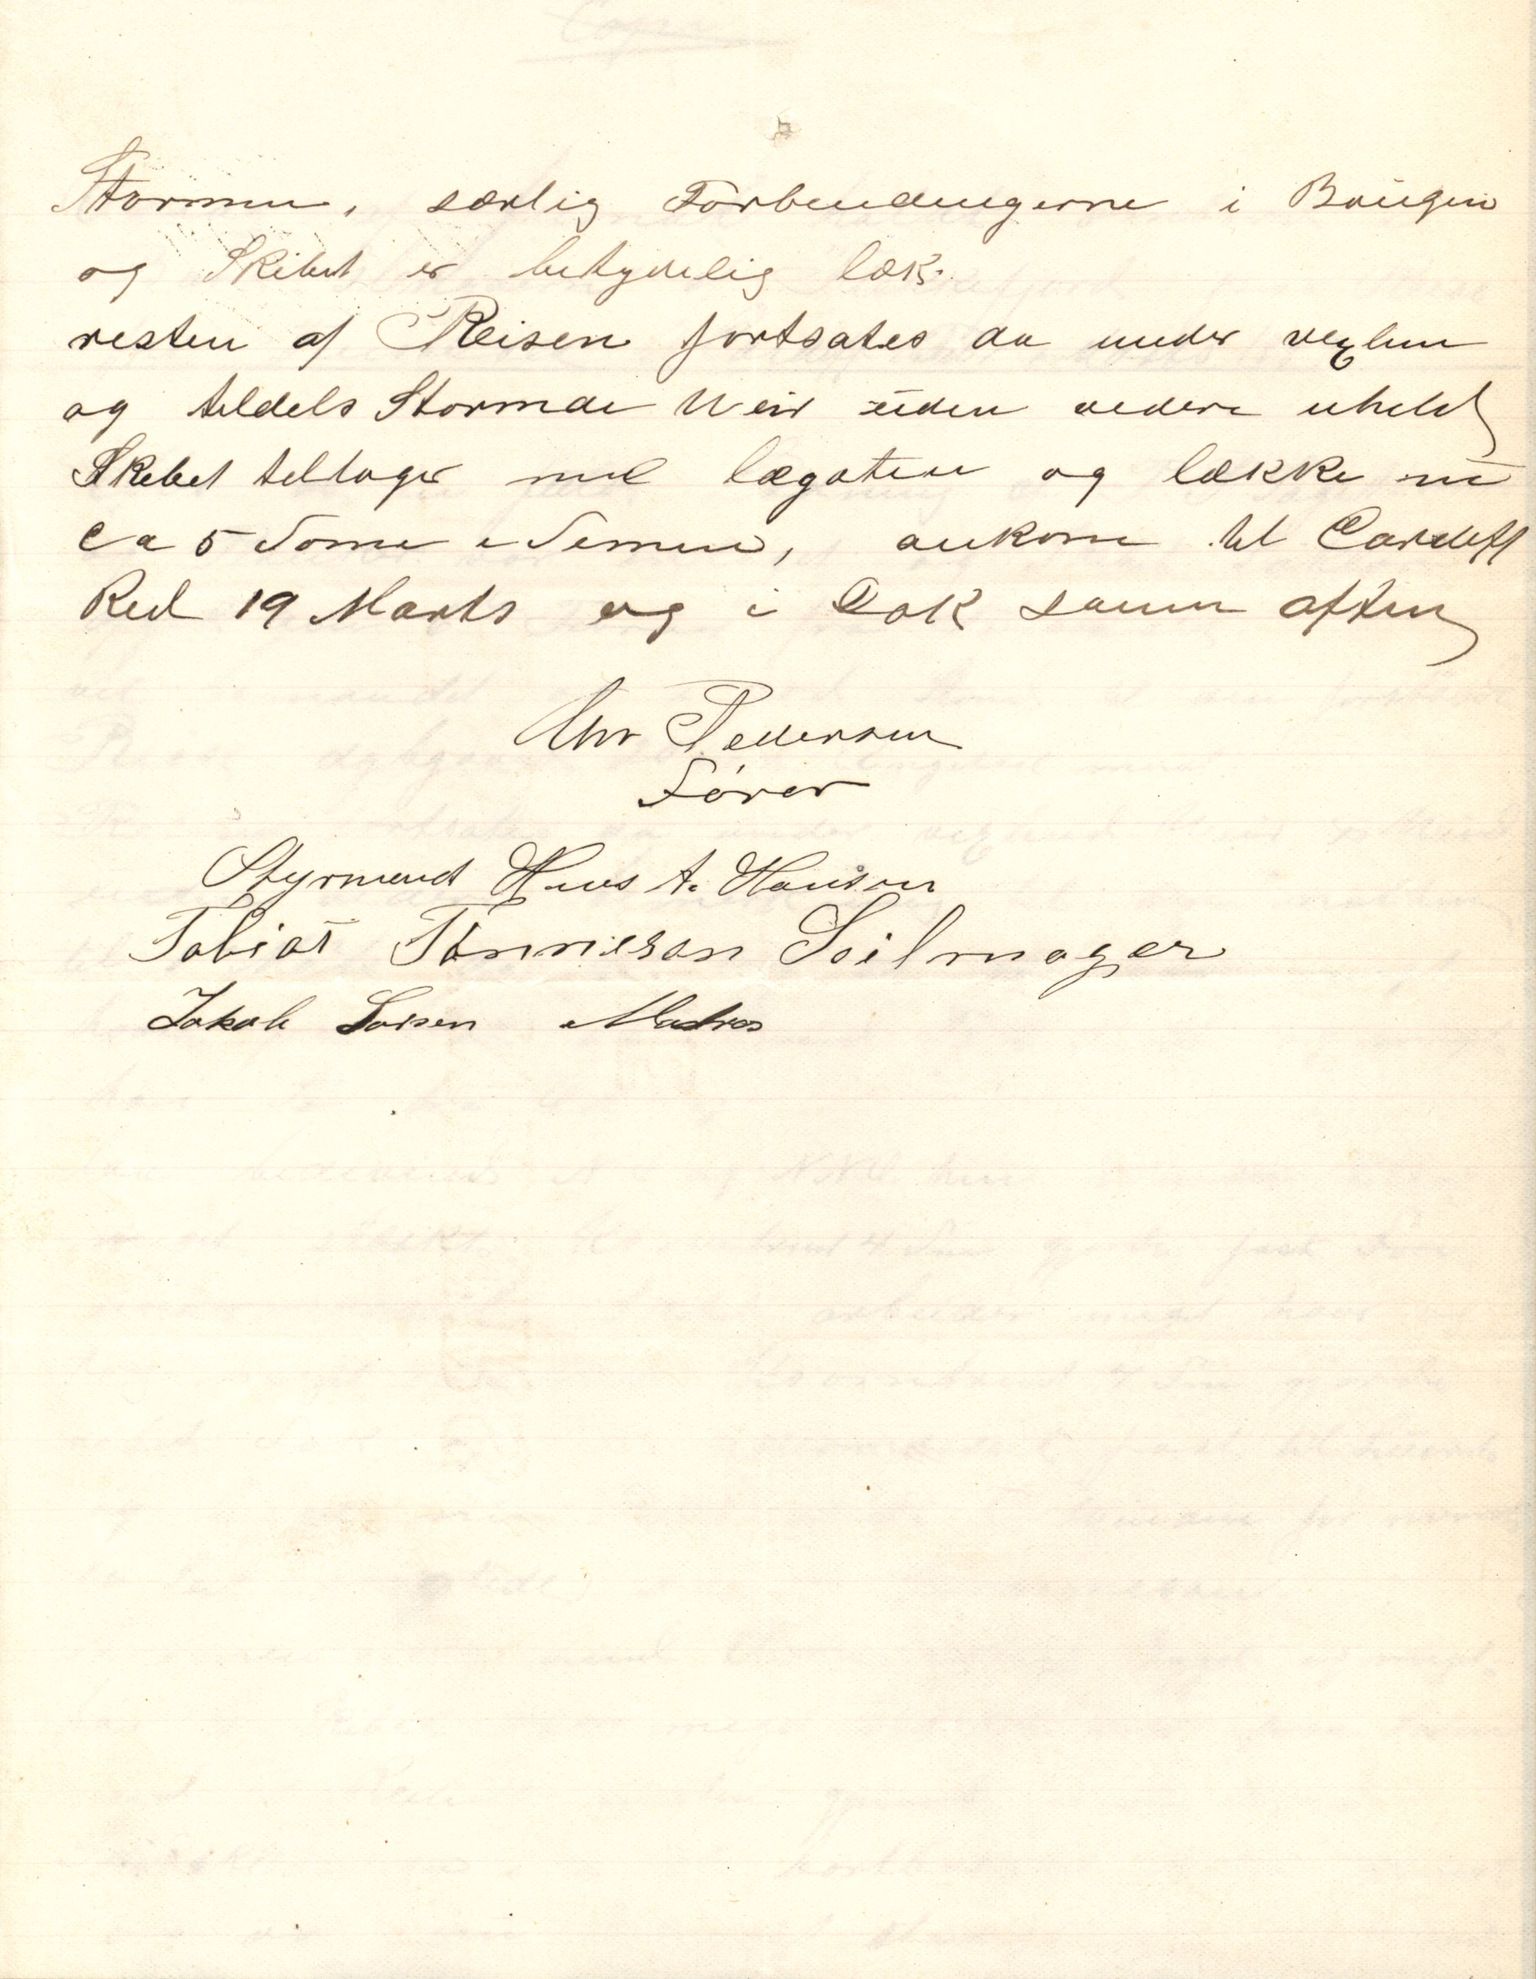 Stormen, særlig Forbendingerne i Bougen
og Skibet er betydelig læk.
resten af Reisen fortsates da under vexlen
og tildels Stormde Veir uden videre uheld
Skibet tiltager med lægaten og lække nu
ca 5 Tome i Timen, ankom til Cardiff
Red 19 Marts og i Dok samme aften
Chr Pedersen
Fører
Styrmand Hans A. Hansen
Tobias Tønnesen Seilmager
Jakob Larsen Matros